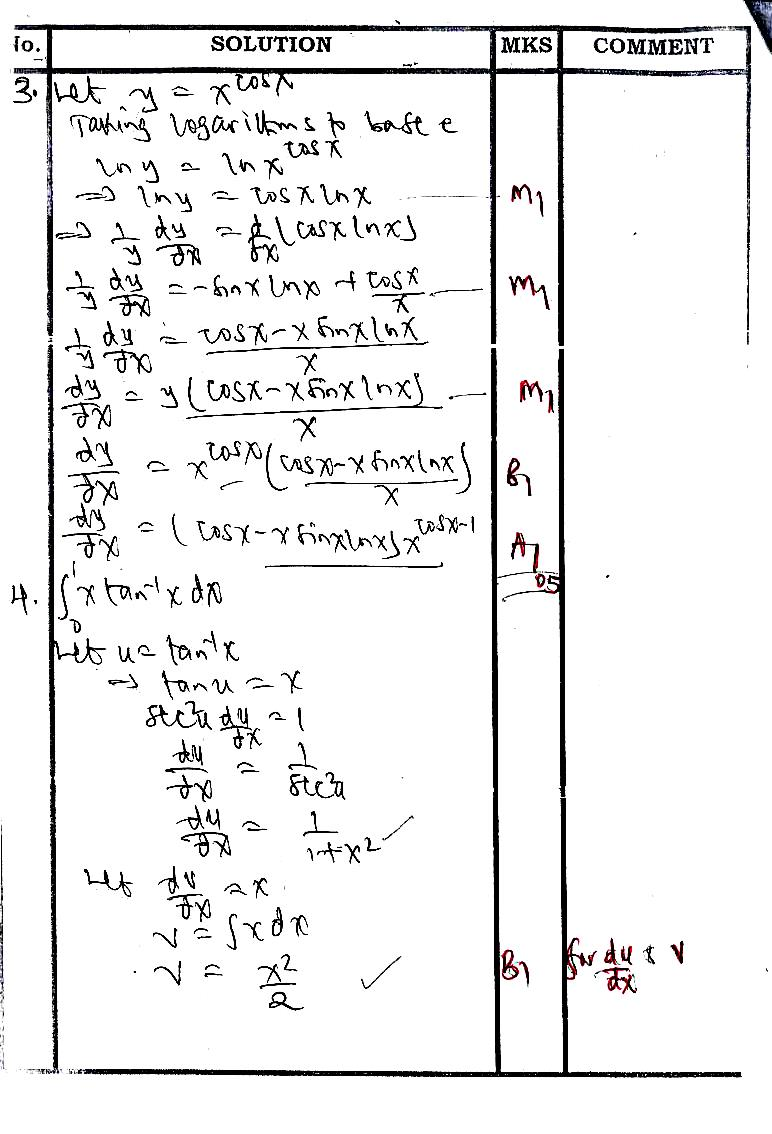 No. SOLUTION MKS COMMENT
3. Let y = x^cosx
Taking logarithms to base e
ln y = ln x^cosx
⇒ ln y = cosx lnx M1
⇒ 1/y dy/dx = d/dx (cosx lnx)
1/y dy/dx = -sinx lnx + cosx/x M1
1/y dy/dx = (cosx - x sinx lnx)/x
dy/dx = y (cosx - x sinx lnx)/x M1
dy/dx = x^cosx ((cosx - x sinx lnx)/x) B1
dy/dx = (cosx - x sinx lnx) x^(cosx-1) A1
05
4. ∫₀¹ x tan⁻¹x dx
Let u = tan⁻¹x
⇒ tan u = x
sec²u du/dx = 1
du/dx = 1/sec²u
du/dx = 1/(1+x²) ✓
Let dv/dx = x
v = ∫x dx
v = x²/2 ✓ B1 for du/dx & v